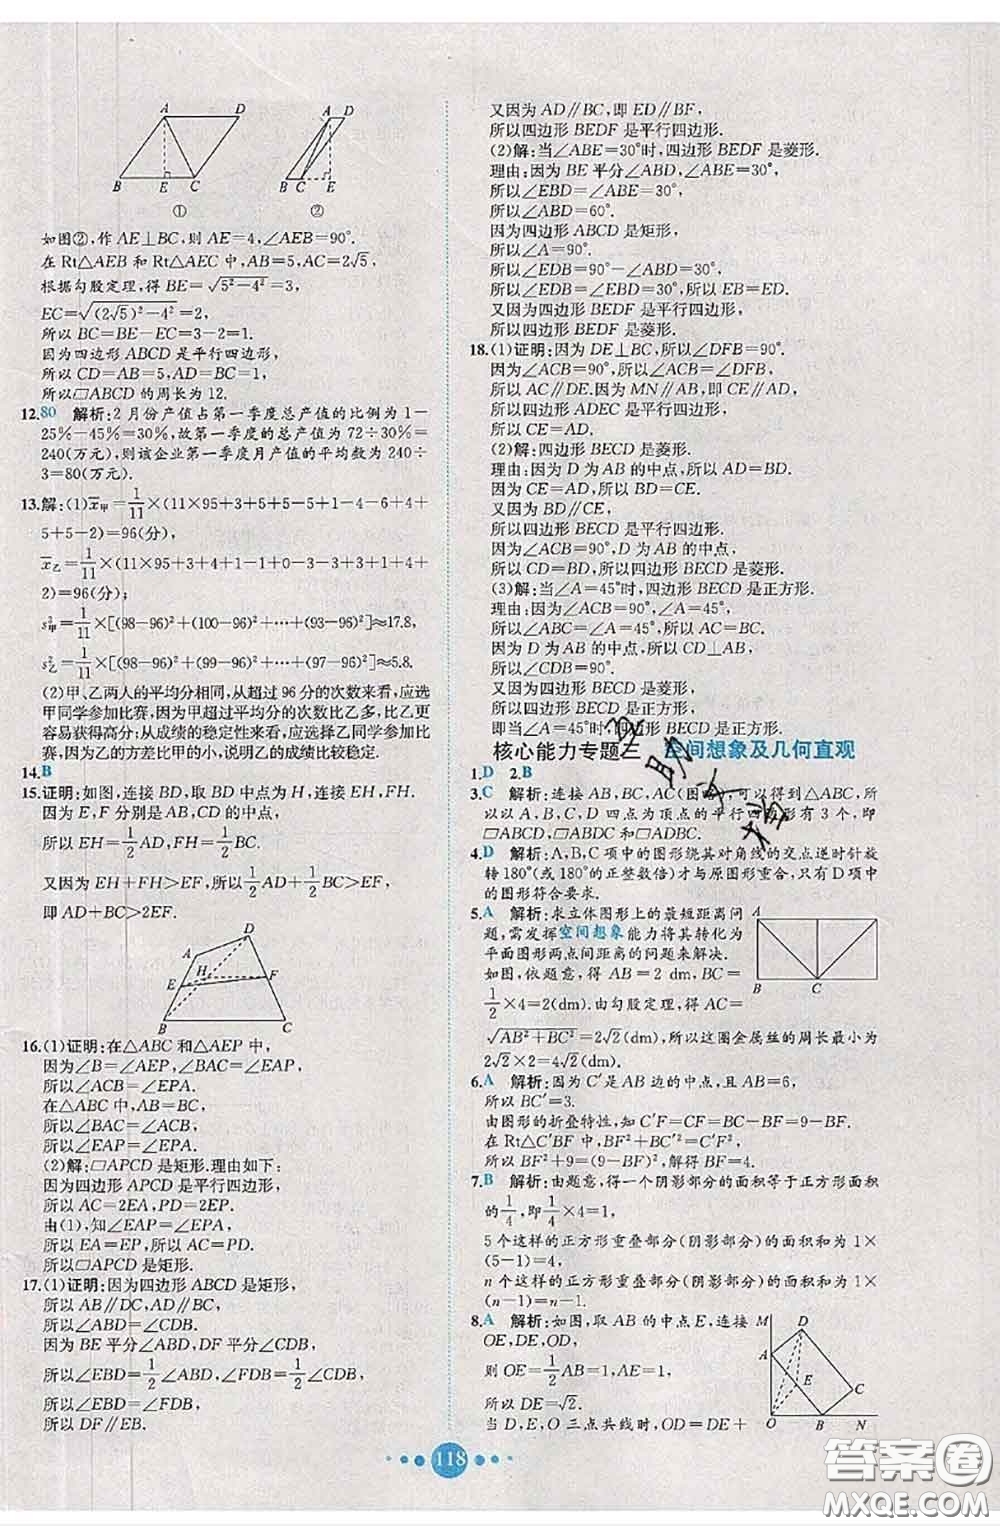 A D A D
B E C B C E
① ②
如图②,作 AE⊥BC,则 AE=4,∠AEB=90°.
在 Rt△AEB 和 Rt△AEC 中,AB=5,AC=2√5,
根据勾股定理,得 BE=√(5²-4²)=3,
EC=√((2√5)²-4²)=2,
所以 BC=BE-EC=3-2=1.
因为四边形 ABCD 是平行四边形,
所以 CD=AB=5,AD=BC=1.
所以□ABCD 的周长为 12.
12.80 解析:2 月份产值占第一季度总产值的比例为 1-
25%-45%=30%,故第一季度的总产值为 72÷30%=
240(万元),则该企业第一季度月产值的平均数为 240÷
3=80(万元).
13.解:(1)x̄甲=1/11×(11×95+3+5+5-5+1-4+4+
5+5-2)=96(分),
x̄乙=1/11×(11×95+3+4+1-1+0-3+3+1+4+
2)=96(分);
s²甲=1/11×[(98-96)²+(100-96)²+…+(93-96)²]≈17.8,
s²乙=1/11×[(98-96)²+(99-96)²+…+(97-96)²]≈5.8.
(2)甲、乙两人的平均分相同,从超过 96 分的次数来看,应选
甲同学参加比赛,因为甲超过平均分的次数比乙多,比乙更
容易获得高分;从成绩的稳定性来看,应选乙同学参加
比赛,因为乙的方差比甲的小,说明乙的成绩比较稳定.
14.B
15.证明:如图,连接 BD,取 BD 中点为 H,连接 EH,FH.
因为 E,F 分别是 AB,CD 的中点,
所以 EH=1/2AD,FH=1/2BC.
又因为 EH+FH>EF,所以1/2AD+1/2BC>EF,
即 AD+BC>2EF.
D
A
H F
E
B C
16.(1)证明:在△ABC 和△AEP 中,
因为∠B=∠AEP,∠BAC=∠EAP,
所以∠ACB=∠EPA.
在△ABC 中,AB=BC,
所以∠BAC=∠ACB,
所以∠EAP=∠EPA.
(2)解:□APCD 是矩形.理由如下:
因为四边形 APCD 是平行四边形,
所以 AC=2EA,PD=2EP.
由(1),知∠EAP=∠EPA,
所以 EA=EP,所以 AC=PD.
所以□APCD 是矩形.
17.(1)证明:因为四边形 ABCD 是矩形,
所以 AB∥DC,AD∥BC,
所以∠ABD=∠CDB.
因为 BE 平分∠ABD,DF 平分∠CDB,
所以∠EBD=1/2∠ABD,∠FDB=1/2∠CDB,
所以∠EBD=∠FDB,
所以 DF∥EB.
又因为 AD∥BC,即 ED∥BF,
所以四边形 BEDF 是平行四边形.
(2)解:当∠ABE=30°时,四边形 BEDF 是菱形.
理由:因为 BE 平分∠ABD,∠ABE=30°,
所以∠EBD=∠ABE=30°,
所以∠ABD=60°.
因为四边形 ABCD 为矩形,
所以∠A=90°.
所以∠EDB=90°-∠ABD=30°.
所以∠EBD=∠EDB=30°,所以 EB=ED.
又因为四边形 BEDF 是平行四边形,
所以四边形 BEDF 是菱形.
18.(1)证明:因为 DE⊥BC,所以∠DFB=90°.
因为∠ACB=90°,所以∠ACB=∠DFB,
所以 AC∥DE.因为 MN∥AB,即 CE∥AD,
所以四边形 ADEC 是平行四边形,
所以 CE=AD.
(2)解:四边形 BECD 是菱形.
理由:因为 D 为 AB 的中点,所以 AD=BD.
因为 CE=AD,所以 BD=CE.
又因为 BD∥CE,
所以四边形 BECD 是平行四边形.
因为∠ACB=90°,D 为 AB 的中点,
所以 CD=BD,所以四边形 BECD 是菱形.
(3)解:当∠A=45°时,四边形 BECD 是正方形.
理由:因为∠ACB=90°,∠A=45°,
所以∠ABC=∠A=45°,所以 AC=BC.
因为 D 为 AB 的中点,所以 CD⊥AB,
所以∠CDB=90°.
又因为四边形 BECD 是菱形,
所以四边形 BECD 是正方形,
即当∠A=45°时,四边形 BECD 是正方形.
核心能力专题二 空间想象及几何直观
1.D 2.B
3.C 解析:连接 AB,BC,AC(图略),可以得到△ABC,所
以以 A,B,C,D 四点为顶点的平行四边形有 3 个,即
□ABCD,□ABDC 和□ADBC.
4.D 解析:A,B,C 项中的图形绕其对角线的交点逆时针旋
转 180°(或 180°的正整数倍)才与原图形重合,只有 D 项中
的图形符合要求.
5.A 解析:求立体图形上的最短距离问
题,需发挥空间想象能力将其转化为
平面图形两点间距离的问题来解决.
如图,依题意,得 AB=2 dm,BC=
1/2×4=2(dm).由勾股定理,得 AC=
√(AB²+BC²)=2√2(dm),所以这圈金属丝的周长最小为
2√2×2=4√2(dm).
A
B C
6.A 解析:因为 C′是 AB 边的中点,且 AB=6,
所以 BC′=3.
由图形的折叠特性,知 C′F=CF=BC-BF=9-BF.
在 Rt△C′BF 中,BF²+BC′²=C′F²,
所以 BF²+9=(9-BF)²,解得 BF=4.
7.B 解析:由题意,得一个阴影部分的面积等于正方形面积
的1/4,即1/4×4=1,
5 个这样的正方形重叠部分(阴影部分)的面积和为 1×
(5-1)=4,
n 个这样的正方形重叠部分(阴影部分)的面积和为 1×
(n-1)=n-1.
8.A 解析:如图,取 AB 的中点 E,连接
OE,DE,OD,
则 OE=1/2AB=1,
所以 DE=√2.
当 D,E,O 三点共线时,OD=DE+
M D
A
E
C
O B N
118
答案圈
MXQE.COM